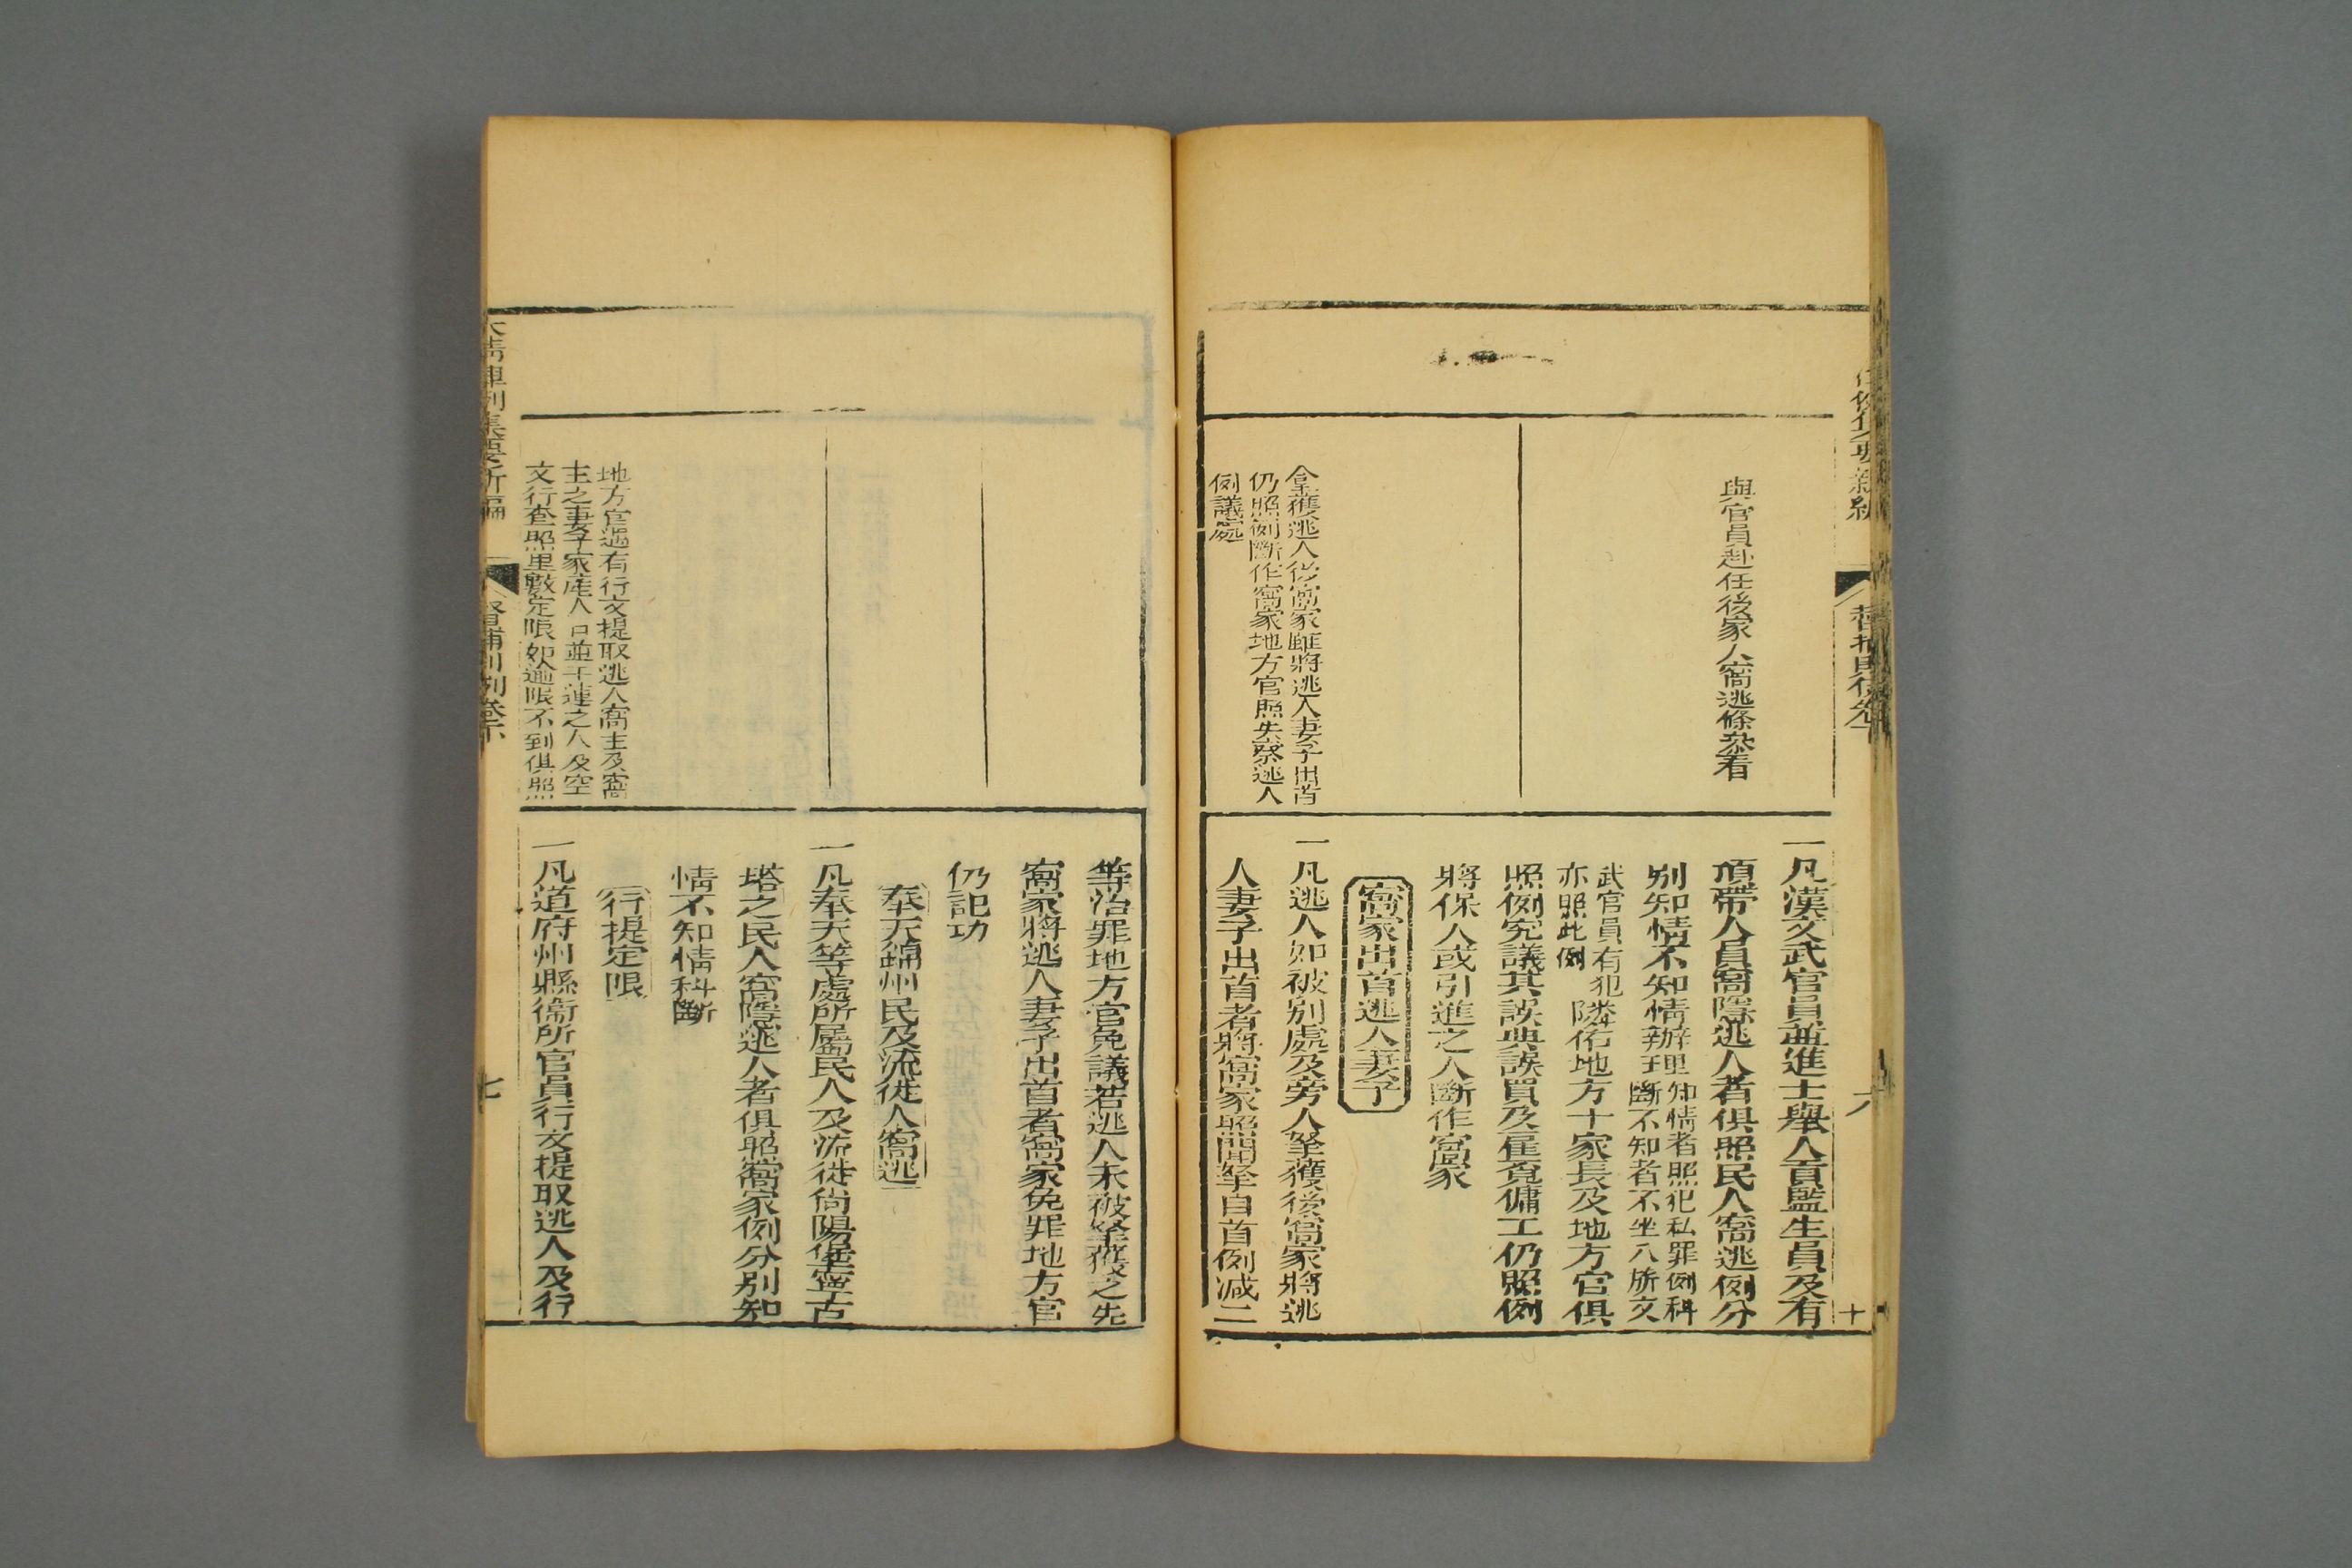 與官員赴任後家人窩逃條叅看
拿獲逃人後窩家雖將逃人妻子出首
仍照例斷作窩家地方官照失察逃人
例議處
一凡漢文武官員並進士舉人貢監生員及有
頂帶人員窩隱逃人者俱照民人窩逃例分
別知情不知情辦理知情者照犯私罪例科斷不知者不坐八旂文
武官員有犯亦照此例隣佑地方十家長及地方官俱
照例究議其誤典誤買及雇覓傭工仍照例
將保人或引進之人斷作窩家
窩家出首逃人妻子
一凡逃人如被別處及旁人拏獲後窩家將逃
人妻子出首者將窩家照聞拏自首例減二
督捕則例卷下
六
十
地方官遇有行文提取逃人窩主及窩
主之妻子家產人口並干連之人及空
文行查照里數定限如逾限不到俱照
等治罪地方官免議若逃人未被拏獲之先
窩家將逃人妻子出首者窩家免罪地方官
仍記功
奉天錦州民及流徙人窩逃
一凡奉天等處所屬民人及流徙尙陽堡寧古
塔之民人窩隱逃人者俱照窩家例分別知
情不知情科斷
行提定限
一凡道府州縣衞所官員行文提取逃人及行
大清律例集要新編
督捕則例卷下
七